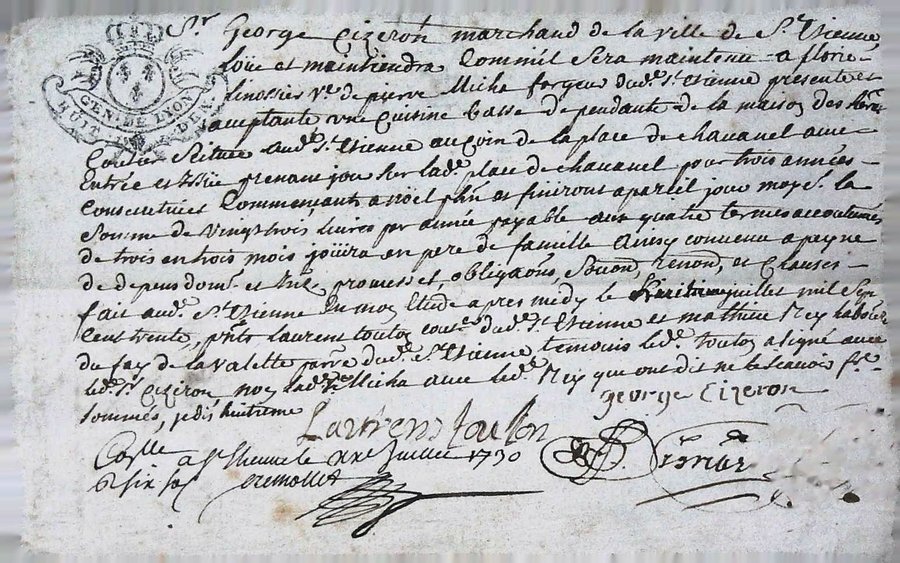 Sr George Cizeron marchand de la ville de St Etienne,
loüe et maintiendra Comme il sera maintenu a florie
ve de pierre Micha forgeur dud. St Etienne presente et
acceptante une Cuisine basse dependante de la maison des
Scituée aud. St Etienne au coin de la place de chavanel avec
Entrée et Issüe prenant jour sur lad. place de chavanel pour trois années
Consecutives Commençants a noël phn et finiront a pareil jour moyet. la
Somme de Vingt trois livres par année payable aux quatre termes accoutumés
de trois en trois mois joüira en pere de famille Ainsy convenu a peyne
de depens dom. et promesses, obligaons, renond, et Clauses
fait aud. St Etienne En mon Etude apres medy le huitieme juillet mil Sept
Cent trente, pnts Laurent toulon dud. St Etienne et mathieu Rey
du fay de la Valette parre dud. St Etienne temoins led. toulon a signé avec
led. Sr Cizeron, non lad. Ve Micha avec led. Rey qui ont dit ne le scavoir fe.
sommés, je dis huitieme
george Cizeron
Laurens toulon
a St Etienne le Juillet 1730
R six
GEN. DE LYON
HUIT DEN.